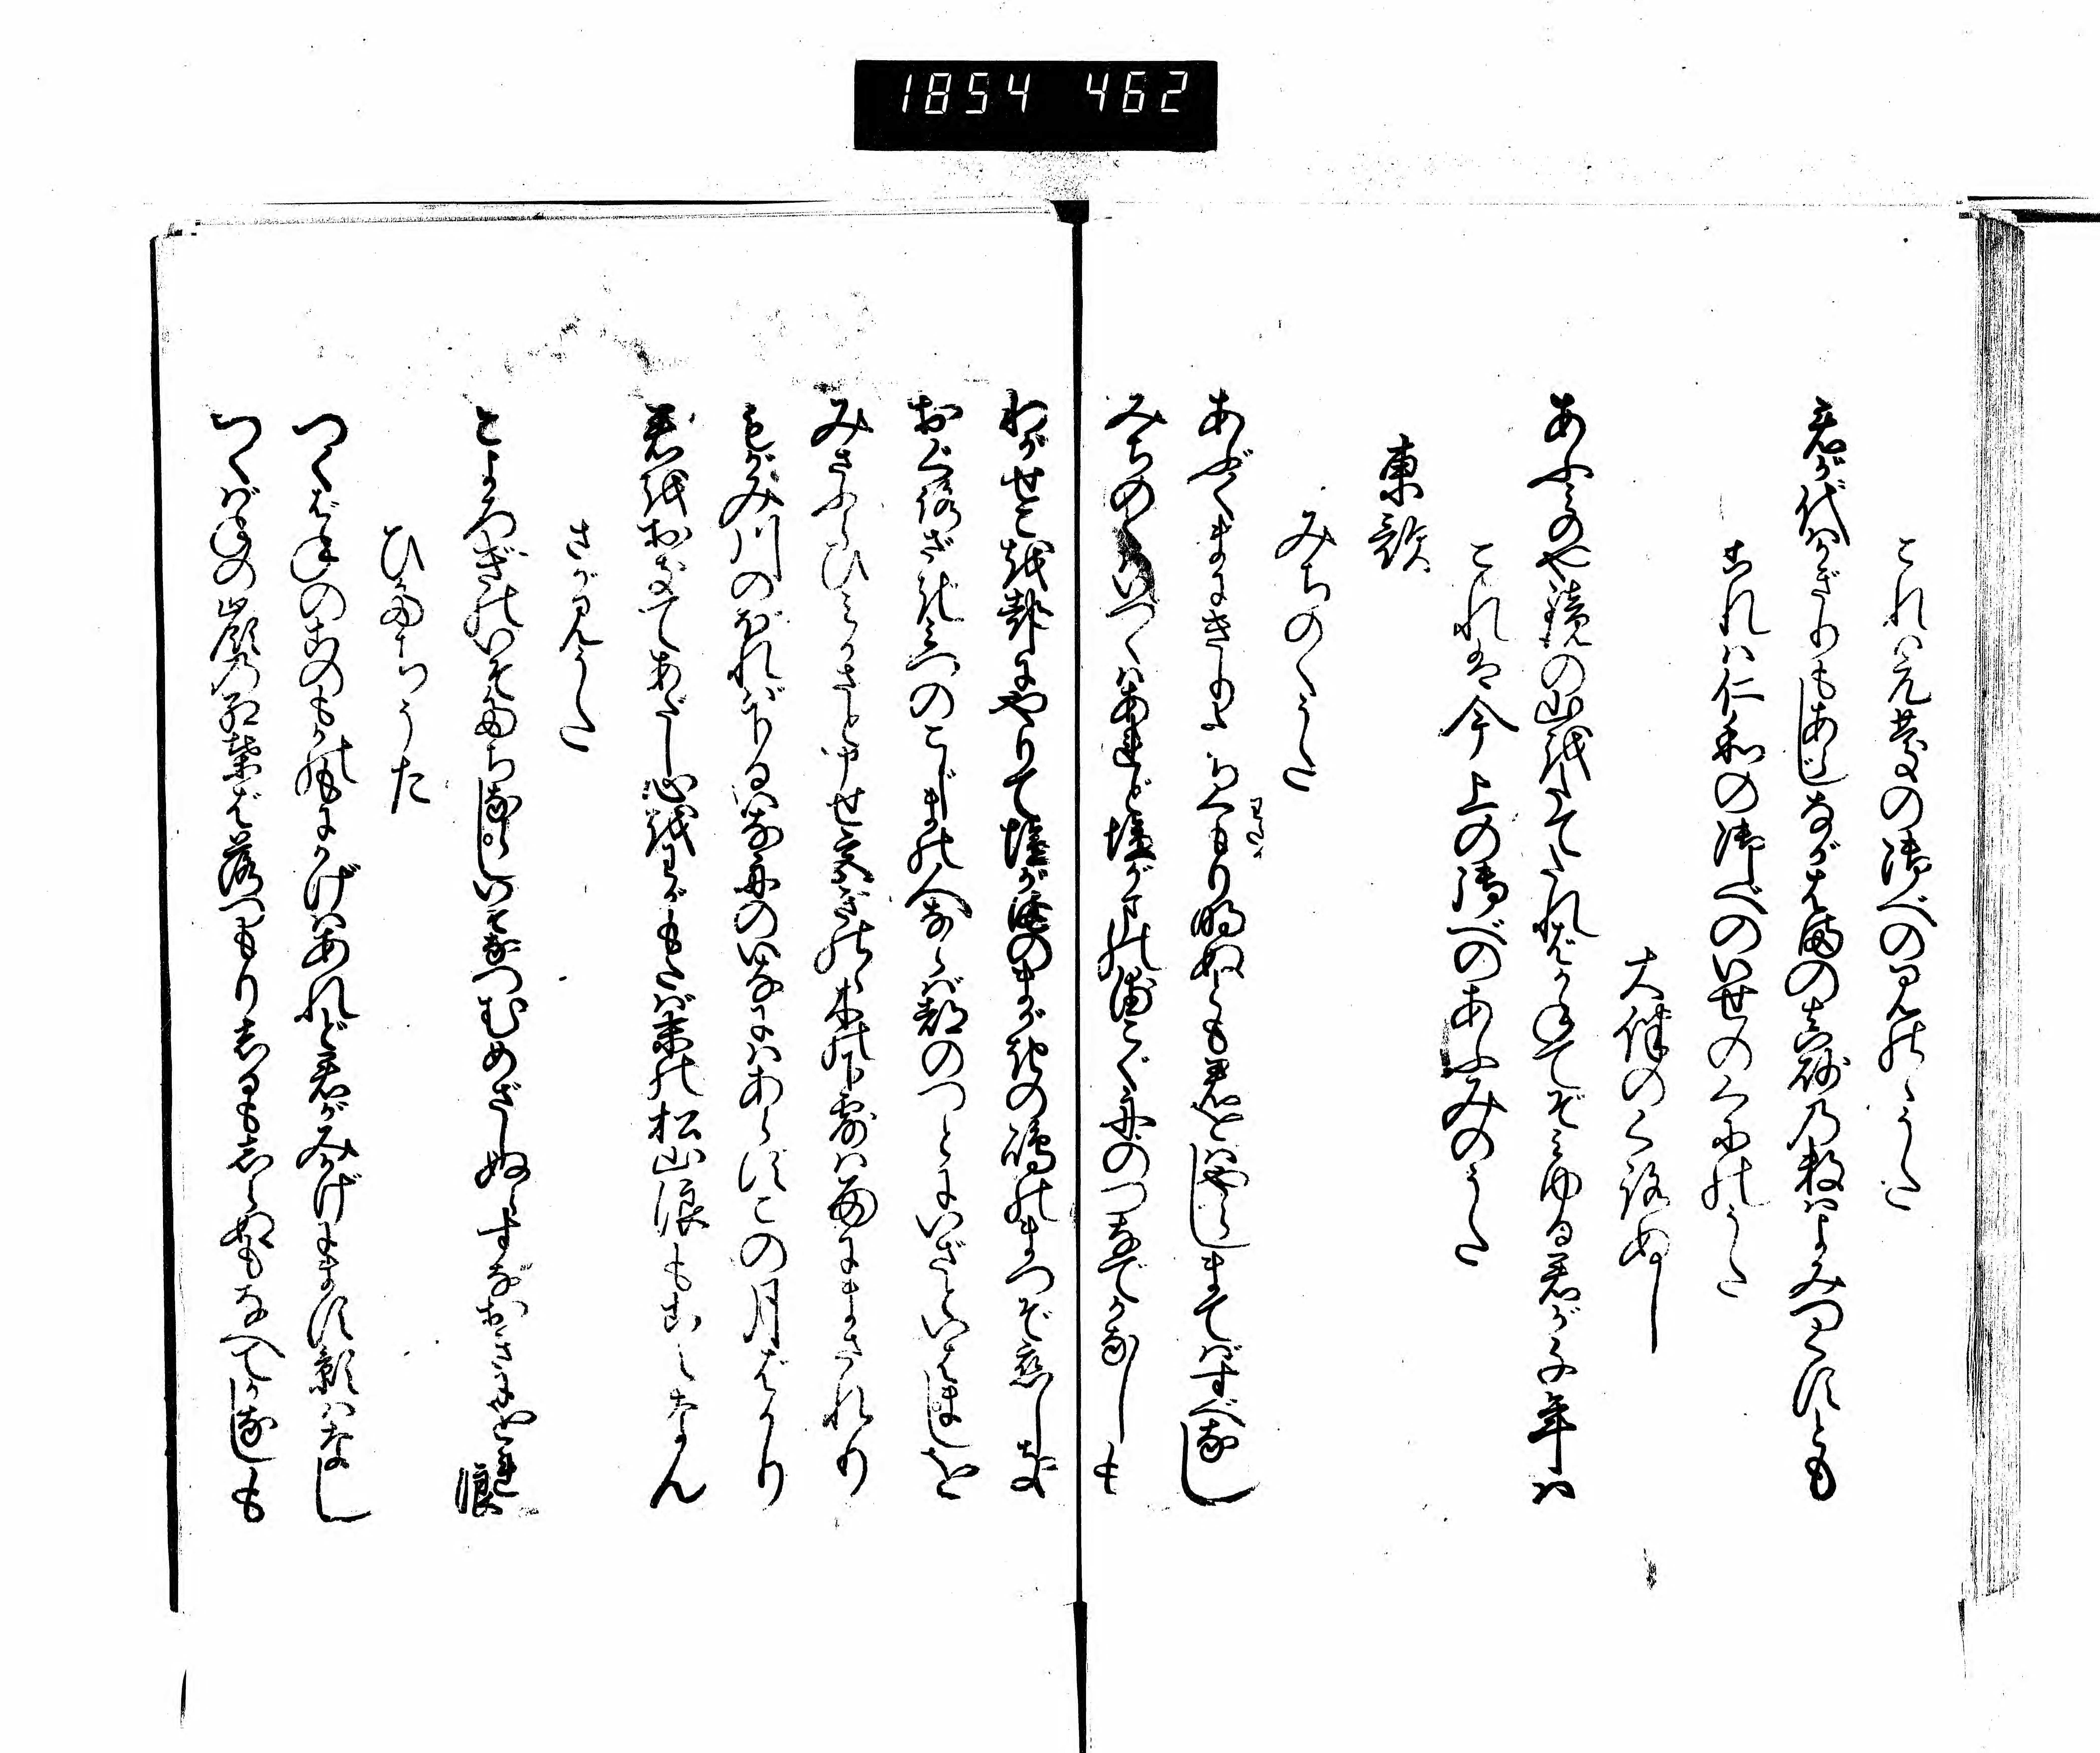 1854 462
これは元慶の御べのみのゝうた
君が代はかぎりもあらじながはまの真砂の数はよみつくすとも
これは仁和の御べのいせのくにのうた
大伴のくろぬし
あふみのや鏡の山をたてたればかねてぞみゆる君が千年は
これは今上の御べのあふみのうた
東歌
みちのくうた
あぶくまにきりたちくもり明ぬとも君をばやらじまてばすべなし
わたり
みちのくはいづくはあれど塩がまの浦こぐ舟のつなでかなしも
わがせこを都にやりて塩がまのまがきの嶋のまつぞ恋しき
おぐろざきみつのこじまの人ならば都のつとにいざといはましを
みさぶらひみかさと申せ宮ぎのゝ木の下露は雨にまされり
もがみ川のぼればくだるいな舟のいなにはあらずこの月ばかり
君をおきてあだし心をわがもたば末の松山浪もこえなん
さがみうた
こよろぎのいそたちならしいそなつむめざしぬらすなおきにをれ浪
ひたちうた
つくばねのこのもかのもにかげはあれど君がみかげにます影はなし
つくばねの嶺の紅葉ば落つもりしるもしらぬもなべてかなしも